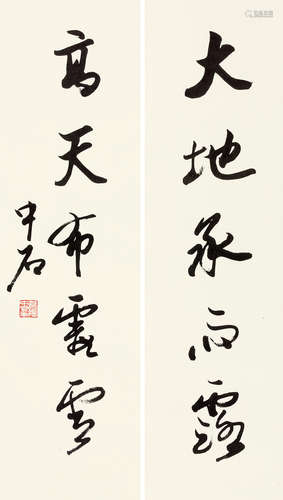 大地承雨露
高天布霞雲
中石